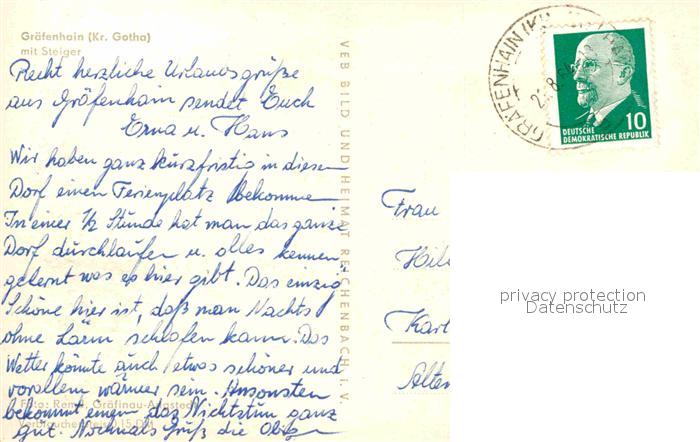 Gräfenhain (Kr. Gotha)
mit Steiger
Recht herzliche Urlaubsgrüße
aus Gräfenhain sendet Euch
Erna u. Hans
Wir haben ganz kurzfristig in diesen
Dorf einen Ferienplatz bekomme
In einer 1/2 Stunde hat man das ganze
Dorf durchlaufen u. alles kennen
gelernt was es hier gibt. Das einzig
Schöne hier ist, daß man Nachts
ohne Lärm schlafen kann. Das
Wetter könnte auch etwas schöner und
vorallem wärmer sein. Ansonsten
bekommt einem das Nichtstun ganz
gut. Nochmals Gruß die Obigen
Foto: Gräfinau-Angstedt
Verbraucherpreis 15 DPf
VEB BILD UND HEIMAT REICHENBACH i. V.
GRÄFENHAIN (KR.
10
DEUTSCHE
DEMOKRATISCHE REPUBLIK
Frau
Hil
Karl
Alten
privacy protection
Datenschutz